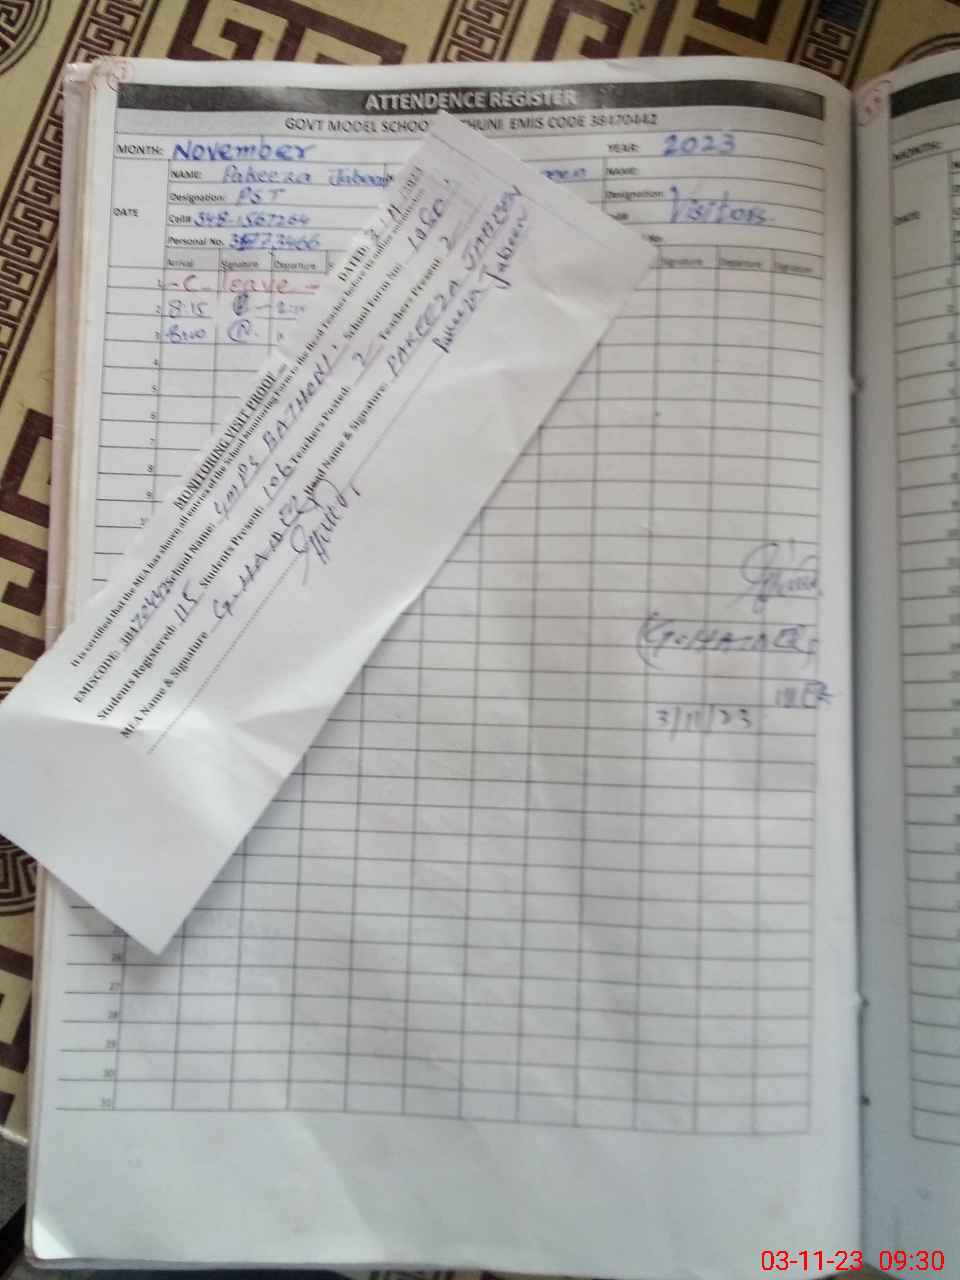 ATTENDENCE REGISTER
GOVT MODEL SCHOOL THUNI EMIS CODE 38470442
MONTH: November YEAR: 2023
NAME: Pakeeza Jabeen NAME:
Designation: PST Designation: Visitors
DATE
Cell#
Personal No.
Arrival Signature Departure Signature Departure Signature
1 -C- leave -
2 8:15
3
4
5
6
7
8
9
MONITORING VISIT PROOF
It is certified that the MEA has shown all entries of the School Monitoring Form to the Head Teacher before its online submission.
DATED: 3/11/2023
EMISCODE: 38470442 School Name: GMPS BATHONI. School Form No: 1060.
Students Registered: 115 Students Present: 106 Teachers Posted: 2 Teachers Present: 2
MEA Name & Signature Head Name & Signature: PAKEEZA JABEEN
Pakeeza Jabeen
3/11/23
26
27
28
29
30
31
MONTH:
DATE
03-11-23 09:30